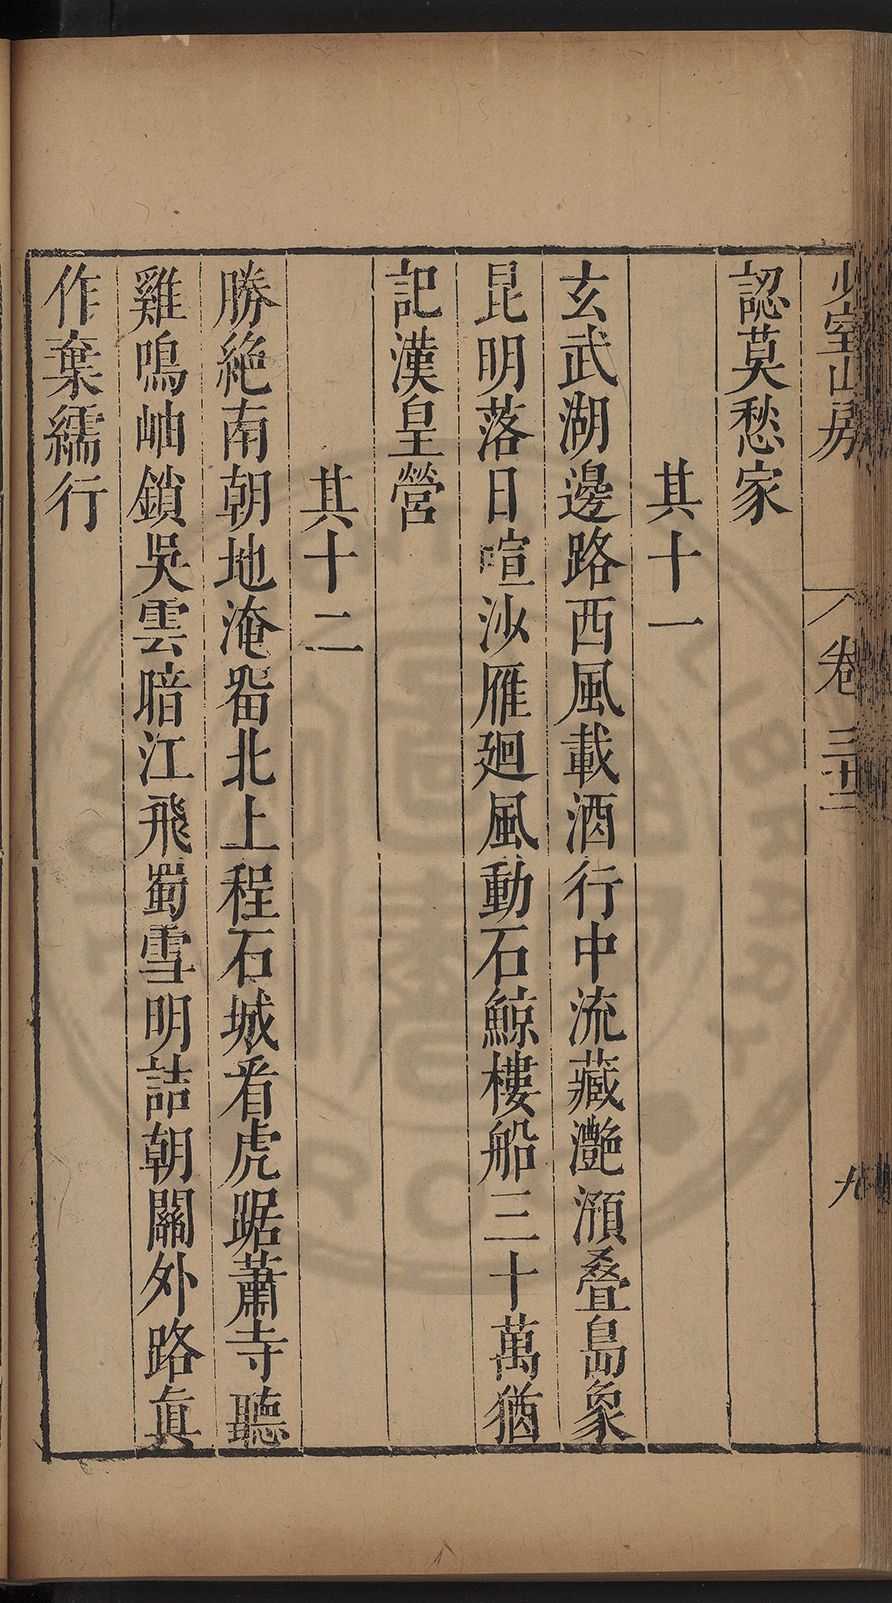 少室山房 卷三十二 九
認莫愁家
其十一
玄武湖邊路西風載酒行中流藏灔澦叠島象
昆明落日喧沙雁廻風動石鯨樓船三十萬猶
記漢皇營
其十二
勝絶南朝地淹畱北上程石城看虎踞蕭寺聽
雞鳴岫鎖吳雲暗江飛蜀雪明詰朝關外路眞
作棄繻行